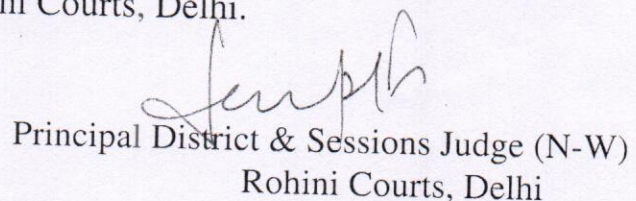 ni Courts, Delhi.
Principal District & Sessions Judge (N-W)
Rohini Courts, Delhi